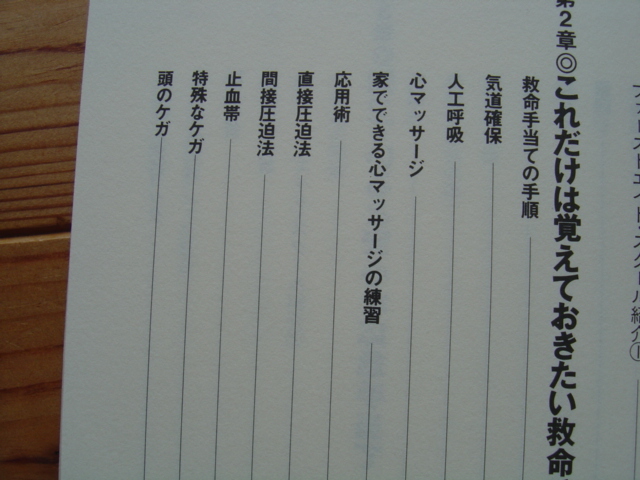 ファーストエイド・スクール紹介①
第2章◎これだけは覚えておきたい救命
救命手当ての手順
気道確保
人工呼吸
心マッサージ
家でできる心マッサージの練習
応用術
直接圧迫法
間接圧迫法
止血帯
特殊なケガ
頭のケガ